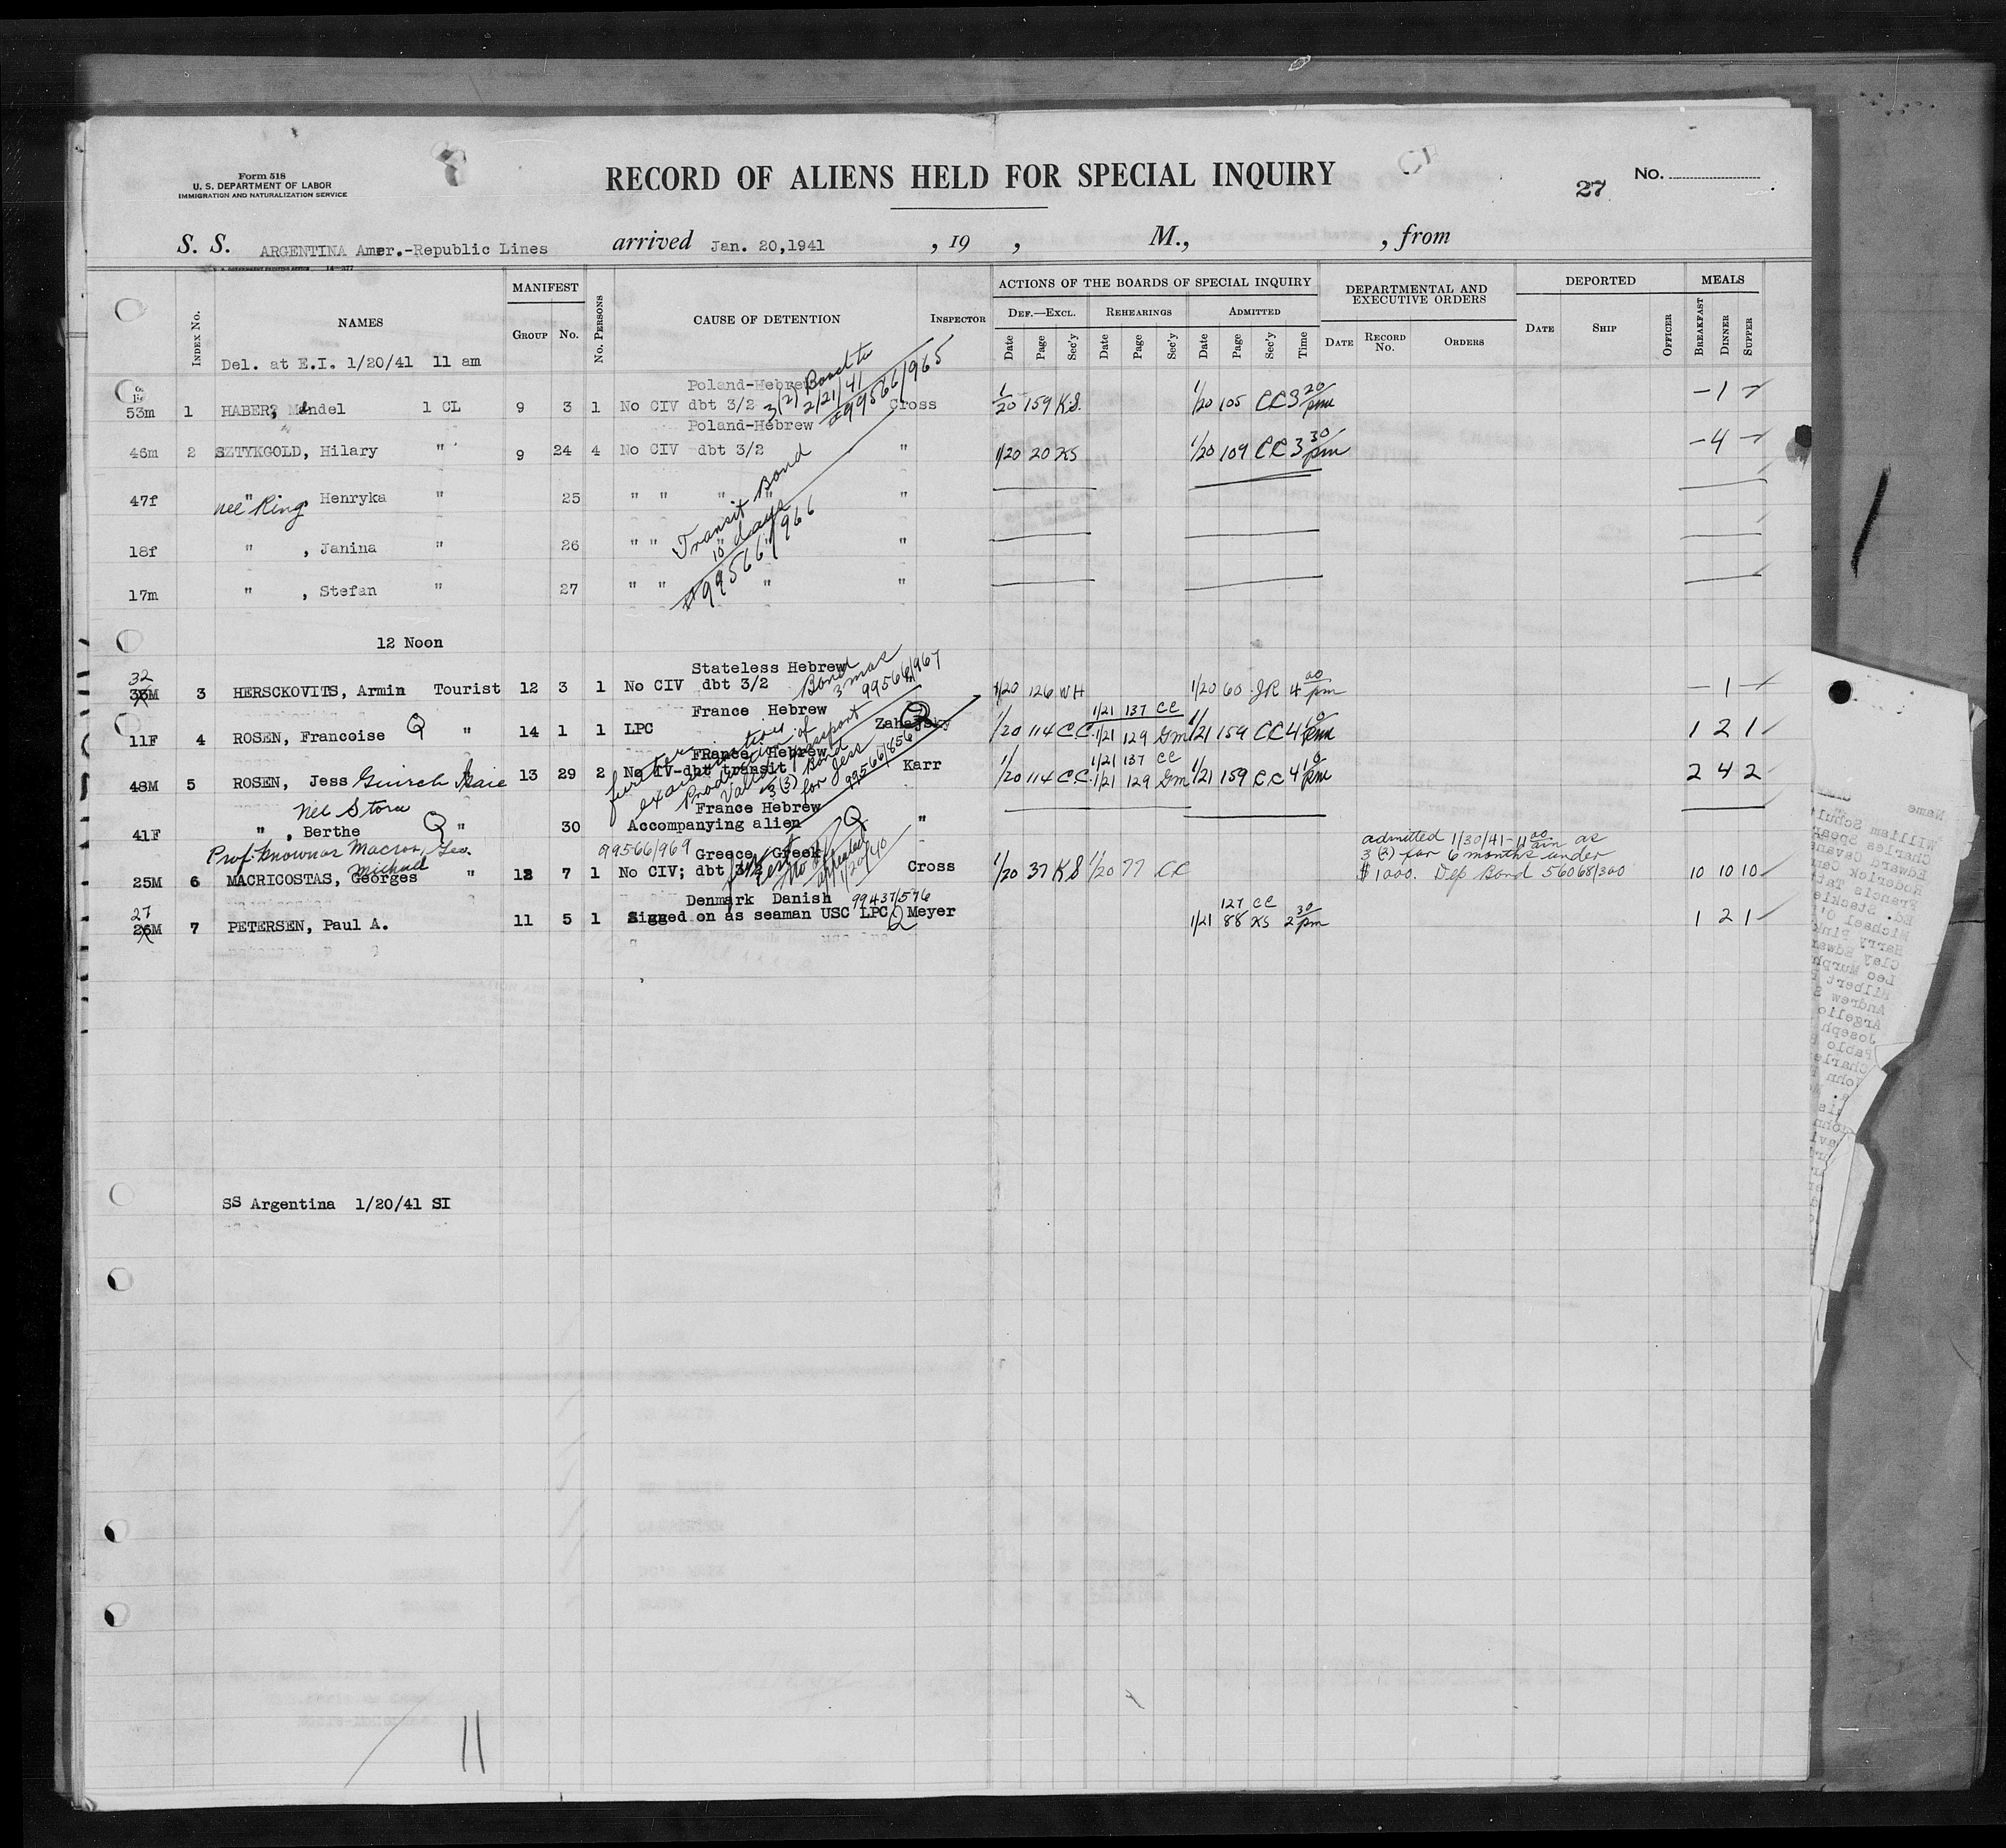 Form 518
U. S. DEPARTMENT OF LABOR
IMMIGRATION AND NATURALIZATION SERVICE
RECORD OF ALIENS HELD FOR SPECIAL INQUIRY
27 No.
S. S. ARGENTINA Amer.-Republic Lines arrived Jan. 20,1941 , 19 , M., , from
INDEX No. NAMES MANIFEST GROUP No. No. PERSONS CAUSE OF DETENTION INSPECTOR ACTIONS OF THE BOARDS OF SPECIAL INQUIRY DEF.—EXCL. REHEARINGS ADMITTED DEPARTMENTAL AND EXECUTIVE ORDERS DEPORTED MEALS
Date Page Sec'y Date Page Sec'y Date Page Sec'y Time DATE RECORD No. ORDERS DATE SHIP OFFICER BREAKFAST DINNER SUPPER
Del. at E.I. 1/20/41 11 am
Poland-Hebrew 3(2) Bond to 2/21/41 #99566/965
53m 1 HABER, Mendel 1 CL 9 3 1 No CIV dbt 3/2 Cross 1/20 159 KS. 1/20 105 CC 3 20 pm – 1 –
Poland-Hebrew
46m 2 SZTYKGOLD, Hilary " 9 24 4 No CIV dbt 3/2 " 1/20 20 KS 1/20 109 CC 3 30 pm – 4 –
47f nee Ring " , Henryka " 25 " " " " "
Transit Bond 10 days #99566/966
18f " , Janina " 26 " " " "
17m " , Stefan " 27 " " " "
12 Noon
Stateless Hebrew Bond 3 mos 99566/967
32
36M 3 HERSCKOVITS, Armin Tourist 12 3 1 No CIV dbt 3/2 1/20 126 WH 1/20 60 JR 4 00 pm – 1 –
France Hebrew 1/21 137 CC
11F 4 ROSEN, Francoise Q " 14 1 1 LPC Zahajsky 1/20 114 C.C. 1/21 129 Gm 1/21 159 CC 4 10 pm 1 2 1
further examination Production of Valid passport 3(3) Bond for Jess 99566/856
France Hebrew 1/21 137 CC
48M 5 ROSEN, Jess 13 29 2 No TV-dbt transit Karr 1/20 114 C.C. 1/21 129 Gm 1/21 159 C.C 4 10 pm 2 4 2
nee Stora France Hebrew
41F " , Berthe Q " 30 Accompanying alien "
Prof. known as Macron, Geo.
99566/969 Greece Greek
25M 6 MACRICOSTAS, Georges Michael " 12 7 1 No CIV; dbt 3/2 appealed 1/20/40 Cross 1/20 37 KS 1/20 77 CC 10 10 10
admitted 1/30/41-11 00 am as
3(2) for 6 months under
$1000. Dep Bond 56068/300
Denmark Danish 99437/576 127 CC
27
26M 7 PETERSEN, Paul A. 11 5 1 Signed on as seaman USC LPC Q Meyer 1/21 88 KS 2 30 pm 1 2 1
SS Argentina 1/20/41 SI
11